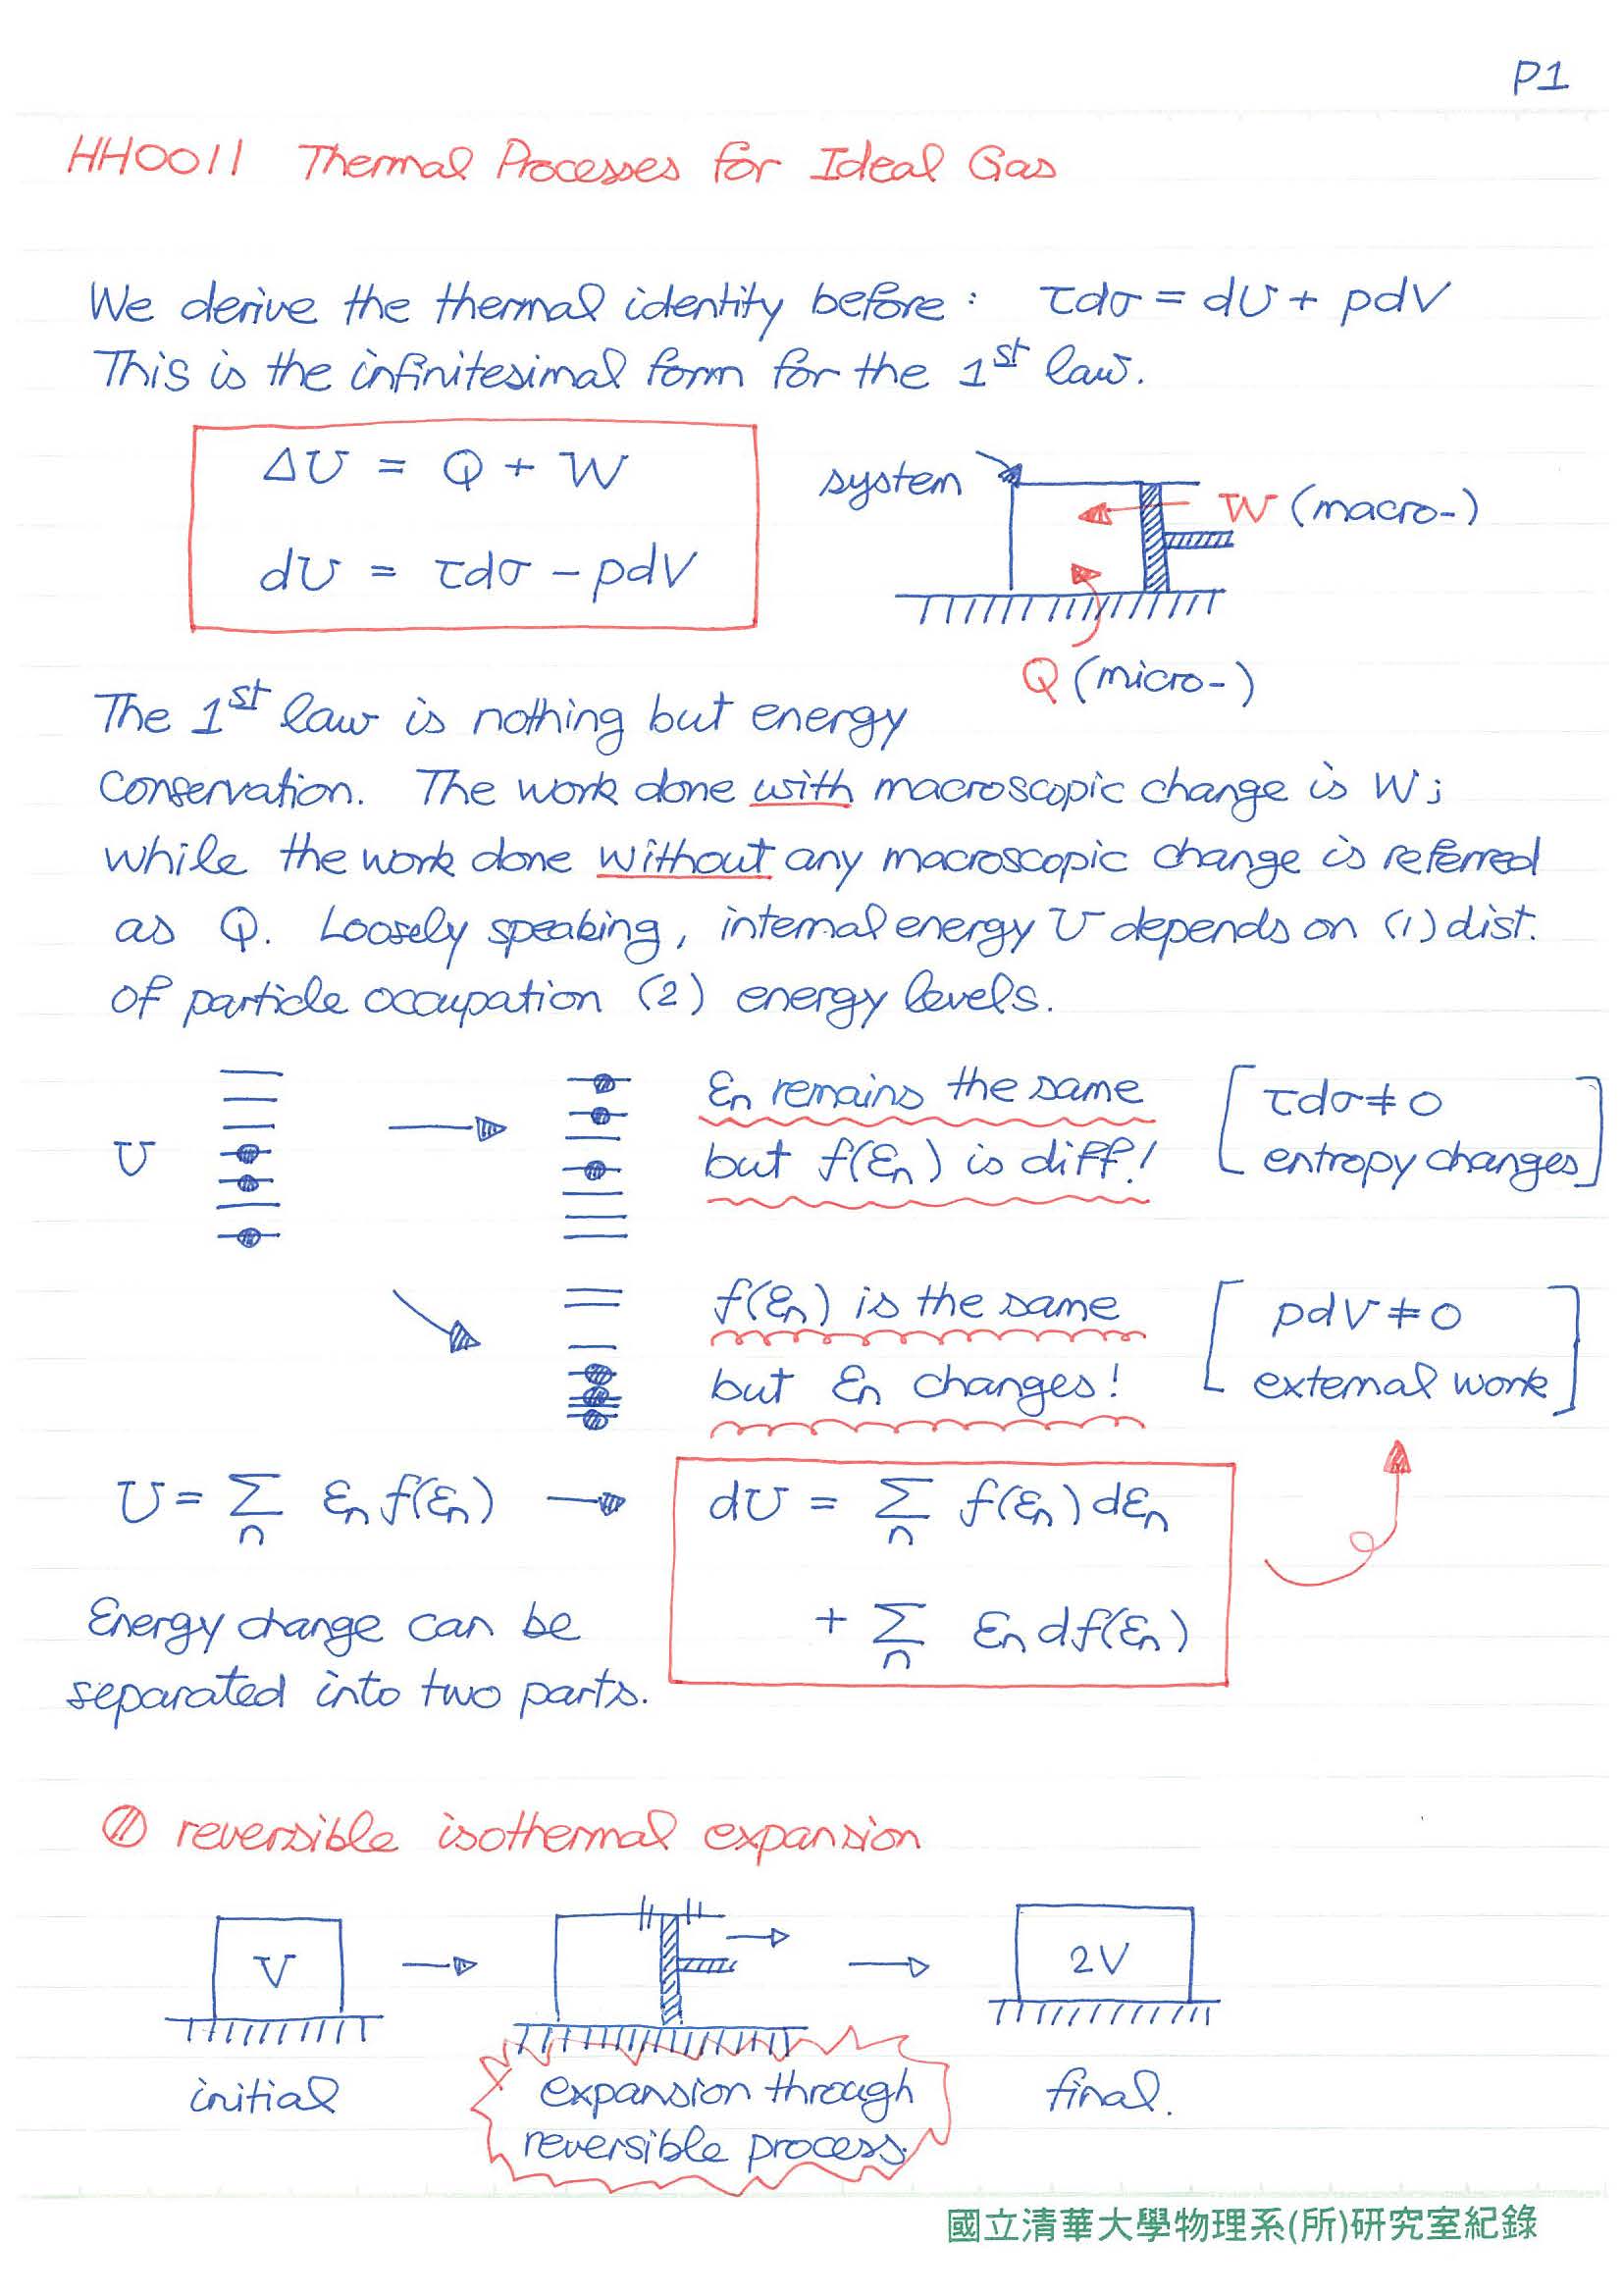 P1
HH0011 Thermal Processes for Ideal Gas
We derive the thermal identity before : τdσ = dU + pdV
This is the infinitesimal form for the 1st law.
ΔU = Q + W
dU = τdσ - pdV
system
W (macro-)
Q (micro-)
The 1st law is nothing but energy
conservation. The work done with macroscopic change is W;
while the work done without any macroscopic change is referred
as Q. Loosely speaking, internal energy U depends on (1) dist.
of particle occupation (2) energy levels.
U
εn remains the same
but f(εn) is diff!
[ τdσ ≠ 0
entropy changes ]
f(εn) is the same
but εn changes!
[ pdV ≠ 0
external work ]
U = Σn εn f(εn) → dU = Σn f(εn) dεn
+ Σn εn df(εn)
Energy change can be
separated into two parts.
reversible isothermal expansion
V
2V
initial
expansion through
reversible process.
final.
國立清華大學物理系(所)研究室紀錄